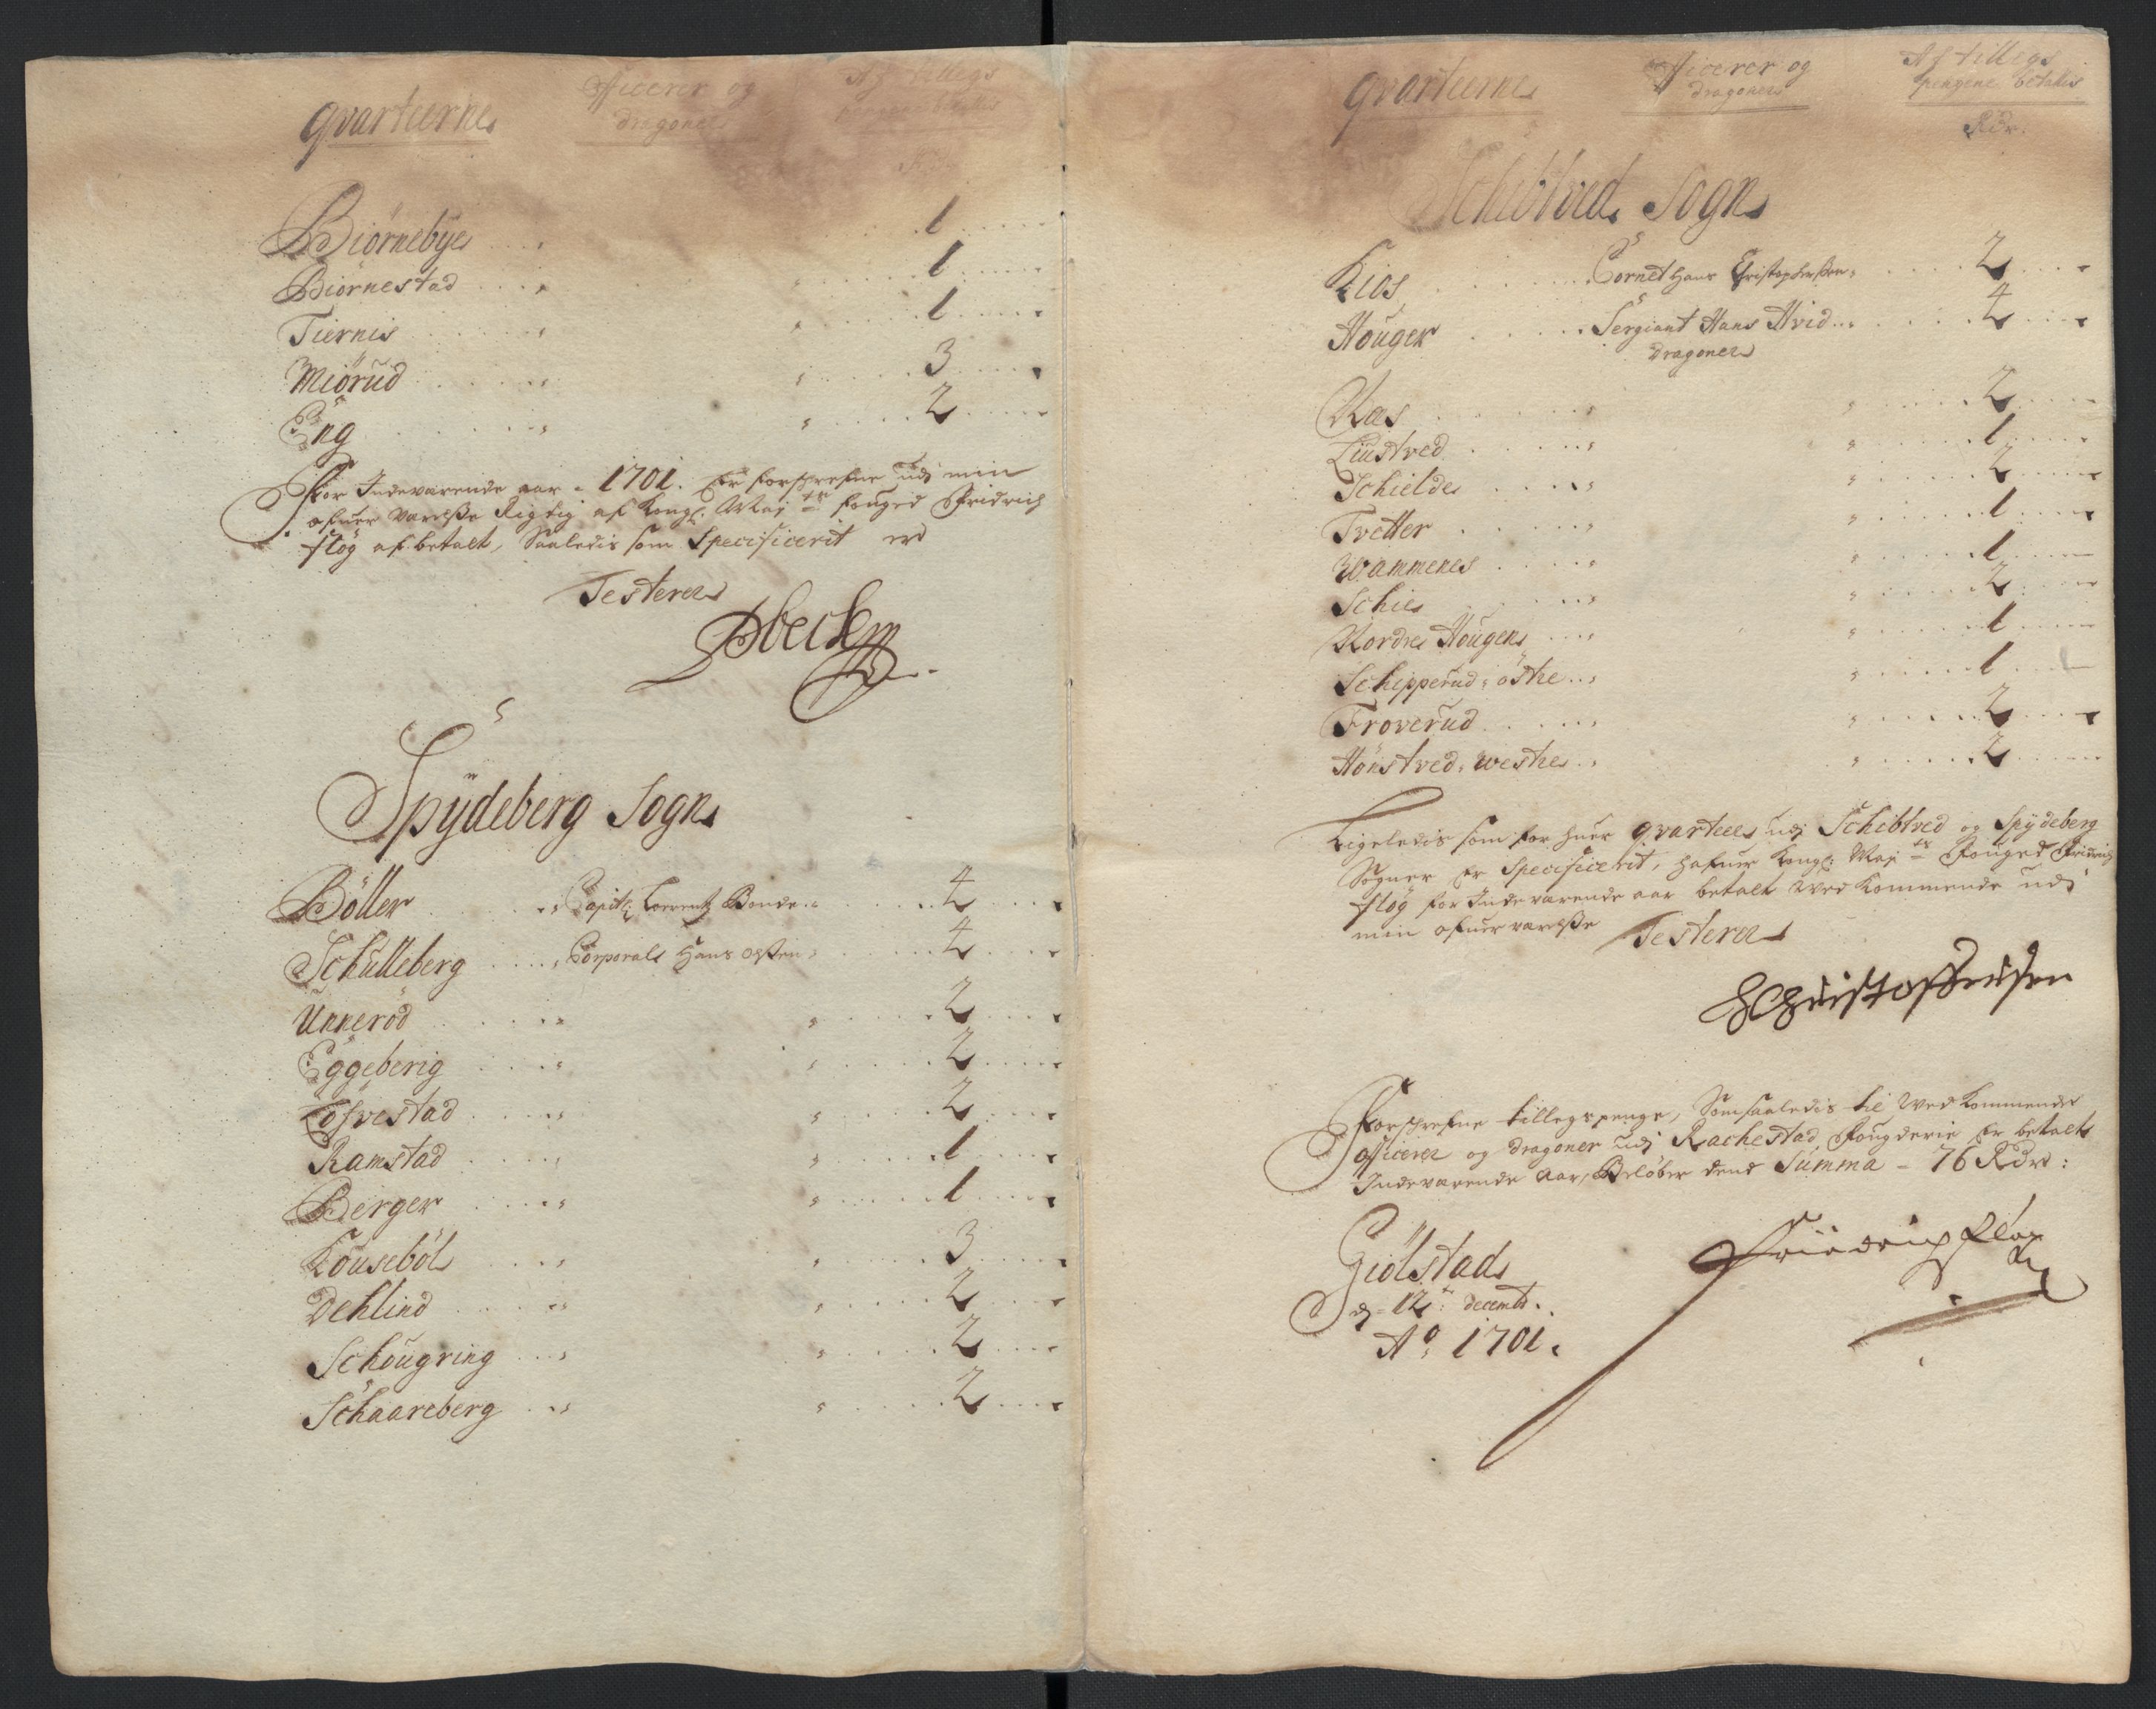 qvarteerne Officerer og dragoner Af tillegs pengene betalis
Rdr
Biörnebye 1
Biörnestad 1
Tiernis 1
Miörud 3
Eng 2
For Indeværende aar 1701. Er forschrefne udj min
ofuer værelsse Rigtig af Kongl: Maj.ts fouged Fridrich
fløg af betalt, Saaledis som Specificerit er
Testerer
Spydeberg Sogn
Böller Capit: Lorrentz Bonde 4
Schulleberg Corporals Hans Olsen 4
Unnerod 2
Eggeberig 2
Löfvestad 2
Ramstad 1
Berger 1
Kouseböl 3
Dehlind 2
Schougring 2
Schaareberg 2
qvarteerne Officerer og dragoner Af tillegs pengene betalis
Rdr.
Schibtved Sogn
Kios Cornet Hans Christophersßen 2
Houger Sergiant Hans Hvid 4
dragoner
Næs 2
Liustved 1
Schielde 2
Tvetter 1
Wammenes 1
Schie 2
Nordre Hougen 1
Schipperud östre 1
Froverud 2
Hönstved westre 2
Ligeledis som for huer qvarteer udj Schibtved og Spydeberg
Sogner Er Specificerit, hafuer Kongl: Maj.ts fouged Fridrich
fløg for Indeværende aar betalt Ved Kommende udj
min ofuerværelsse Testerer
HChristoffersen
Forschrefne tillegspenge, Som saaledis til Ved Kommende
officerer og dragoner udj Rachestad fougderie Er betalt
Indeværende Aar, Beløber dend Summa - 76 Rdr:
Giölstad
d= 12: decembr.
Ao. 1701.
Friedrich Fløg